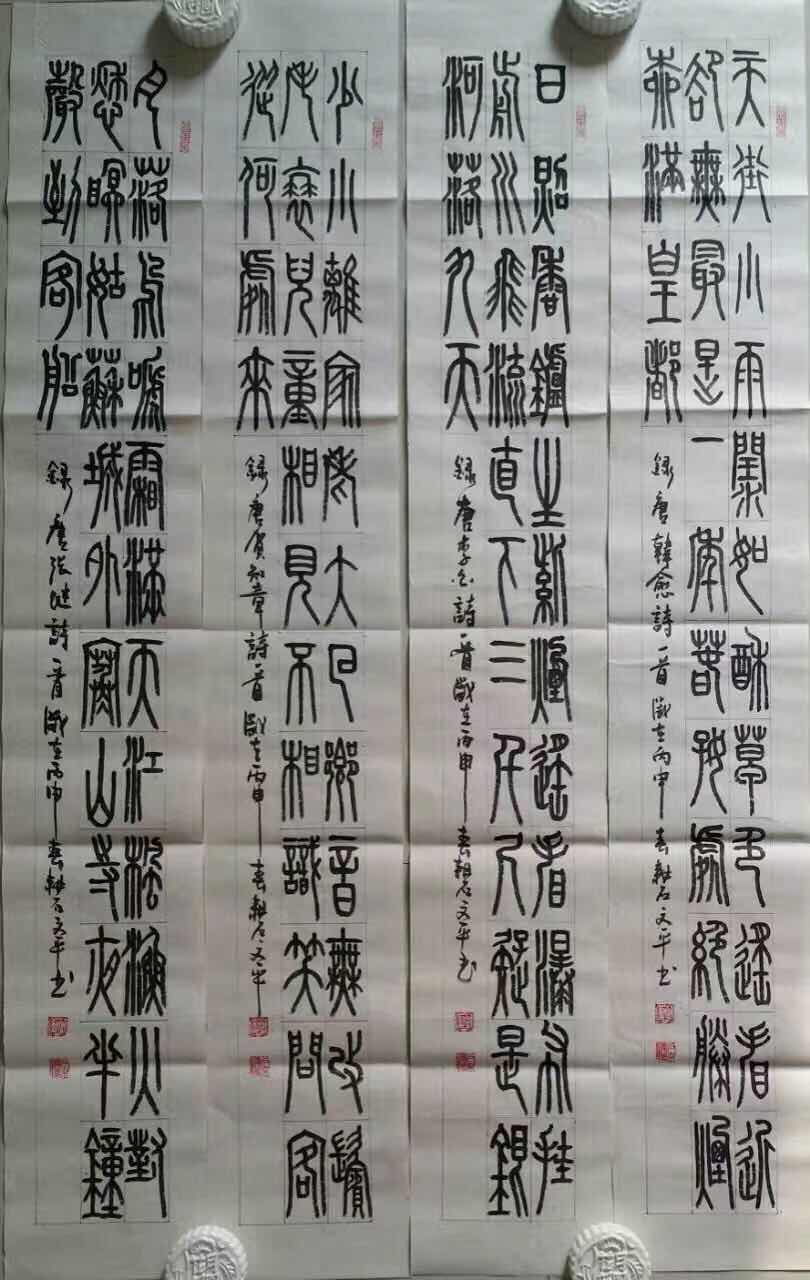 天街小雨潤如酥草色遙看近
卻無最是一年春好處絕勝煙
柳滿皇都
錄唐韓愈詩一首歲在丙申春耕石文平书
日照香鑪生紫煙遙看瀑布挂
前川飛流直下三千尺疑是銀
河落九天
錄唐李白詩一首歲在丙申春耕石文平书
少小離家老大回鄉音無改鬢
毛衰兒童相見不相識笑問客
從何處來
錄唐賀知章詩一首歲在丙申春耕石文平
月落烏啼霜滿天江楓漁火對
愁眠姑蘇城外寒山寺夜半鐘
聲到客船
錄唐張繼詩一首歲在丙申春耕石文平书